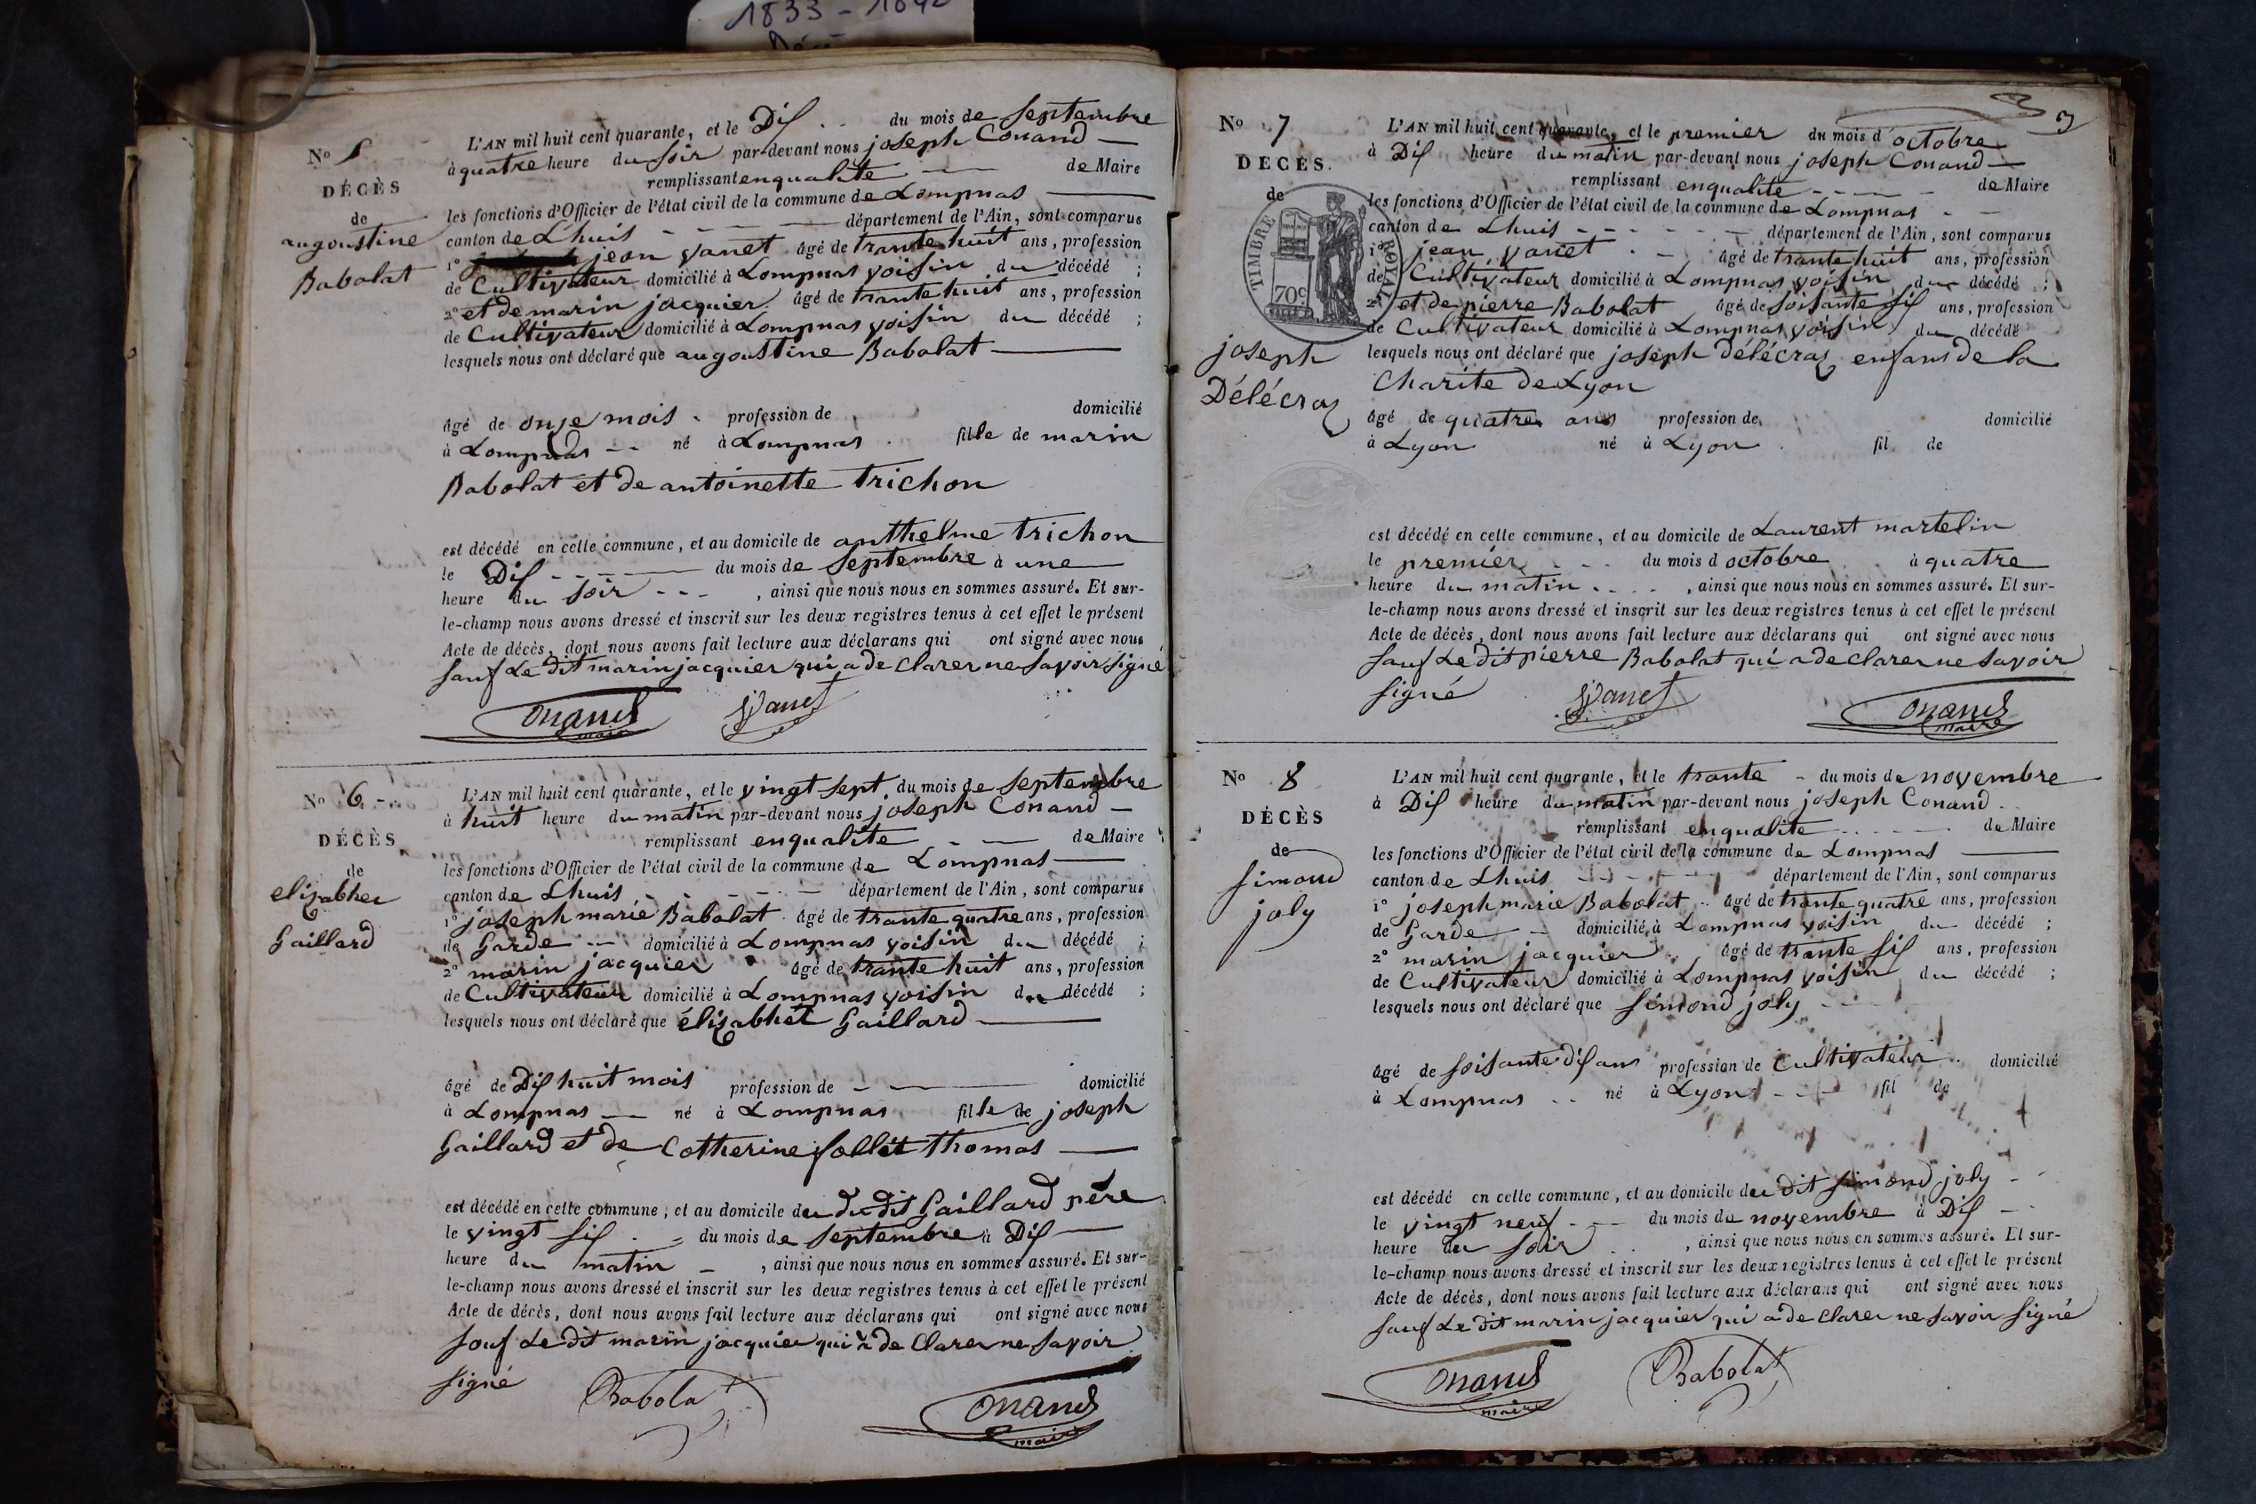 1833 - 1842
Nº 5
DÉCÈS
de
augoustine
Babolat
L'AN mil huit cent quarante, et le Dis du mois de septembre
à quatre heure du soir par-devant nous joseph Conand
remplissant enqualite de Maire
les fonctions d'Officier de l'état civil de la commune de Lompnas
canton de Lhuis département de l'Ain, sont comparus
1º jean vanet âgé de trante huit ans, profession
de Cultivateur domicilié à Lompnas voisin du décédé ;
2º et de marin jacquier âgé de trante huit ans, profession
de Cultivateur domicilié à Lompnas voisin du décédé ;
lesquels nous ont déclaré que augoustine Babolat
âgé de onze mois profession de domicilié
à Lompnas né à Lompnas fille de marin
Babolat et de antoinette trichon
est décédé en cette commune, et au domicile de anthelme trichon
le Dis du mois de septembre à une
heure du soir , ainsi que nous nous en sommes assuré. Et sur-
le-champ nous avons dressé et inscrit sur les deux registres tenus à cet effet le présent
Acte de décès, dont nous avons fait lecture aux déclarans qui ont signé avec nous
sauf Le dit marin jacquier qui a de clarer ne savoir signé
Conand J Vanet
maire
Nº 6
DÉCÈS
de
elizabhet
Gaillard
L'AN mil huit cent quarante, et le vingt sept du mois de septembre
à huit heure du matin par-devant nous joseph Conand
remplissant enqualite de Maire
les fonctions d'Officier de l'état civil de la commune de Lompnas
canton de Lhuis département de l'Ain, sont comparus
1º joseph marie Babolat âgé de trante quatre ans, profession
de Garde domicilié à Lompnas voisin du décédé ;
2º marin jacquier âgé de trante huit ans, profession
de Cultivateur domicilié à Lompnas voisin du décédé ;
lesquels nous ont déclaré que élizabhét Gaillard
âgé de Dis huit mois profession de domicilié
à Lompnas né à Lompnas fille de joseph
Gaillard et de Catherine follit thomas
est décédé en cette commune, et au domicile du dudit Gaillard père
le vingt sis du mois de septembre à Dis
heure du matin , ainsi que nous nous en sommes assuré. Et sur-
le-champ nous avons dressé et inscrit sur les deux registres tenus à cet effet le présent
Acte de décès, dont nous avons fait lecture aux déclarans qui ont signé avec nous
souf Le dit marin jacquier qui a de Clarer ne savoir
signé Babolat Conand
maire
3
Nº 7
DÉCÈS.
de
TIMBRE ROYAL
70c
joseph
Délécraz
L'AN mil huit cent quarante, et le premier du mois d'octobre
à Dis heure du matin par-devant nous joseph Conand
remplissant enqualite de Maire
les fonctions d'Officier de l'état civil de la commune de Lompnas
canton de Lhuis département de l'Ain, sont comparus
1º jean vanet âgé de trante huit ans, profession
de Cultivateur domicilié à Lompnas voisin du décédé ;
2º et de pierre Babolat âgé de soisante sis ans, profession
de Cultivateur domicilié à Lompnas voisin du décédé
lesquels nous ont déclaré que joseph délécraz enfans de la
Charite de Lyon
âgé de quatre ans profession de domicilié
à Lyon né à Lyon fil de
est décédé en cette commune, et au domicile de Laurent martelin
le premier du mois d octobre à quatre
heure du matin , ainsi que nous nous en sommes assuré. Et sur-
le-champ nous avons dressé et inscrit sur les deux registres tenus à cet effet le présent
Acte de décès, dont nous avons fait lecture aux déclarans qui ont signé avec nous
sauf Le dit pierre Babolat qui a de clarer ne savoir
signé J Vanet Conand
maire
Nº 8
DÉCÈS
de
simond
joly
L'AN mil huit cent quarante, et le trante du mois de novembre
à Dis heure du matin par-devant nous joseph Conand
remplissant enqualite de Maire
les fonctions d'Officier de l'état civil de la commune de Lompnas
canton de Lhuis département de l'Ain, sont comparus
1º joseph marie Babolat âgé de trante quatre ans, profession
de Garde domicilié à Lompnas voisin du décédé ;
2º marin jacquier âgé de trante sis ans, profession
de Cultivateur domicilié à Lompnas voisin du décédé ;
lesquels nous ont déclaré que simond joly
âgé de soisante dis ans profession de Cultivateur domicilié
à Lompnas né à Lyon fil de
est décédé en cette commune, et au domicile du dit simond joly
le vingt neuf du mois de novembre à Dis
heure du soir , ainsi que nous nous en sommes assuré. Et sur-
le-champ nous avons dressé et inscrit sur les deux registres tenus à cet effet le présent
Acte de décès, dont nous avons fait lecture aux déclarans qui ont signé avec nous
sauf Le dit marin jacquier qui a de clarer ne savoir signé
Conand Babolat
maire